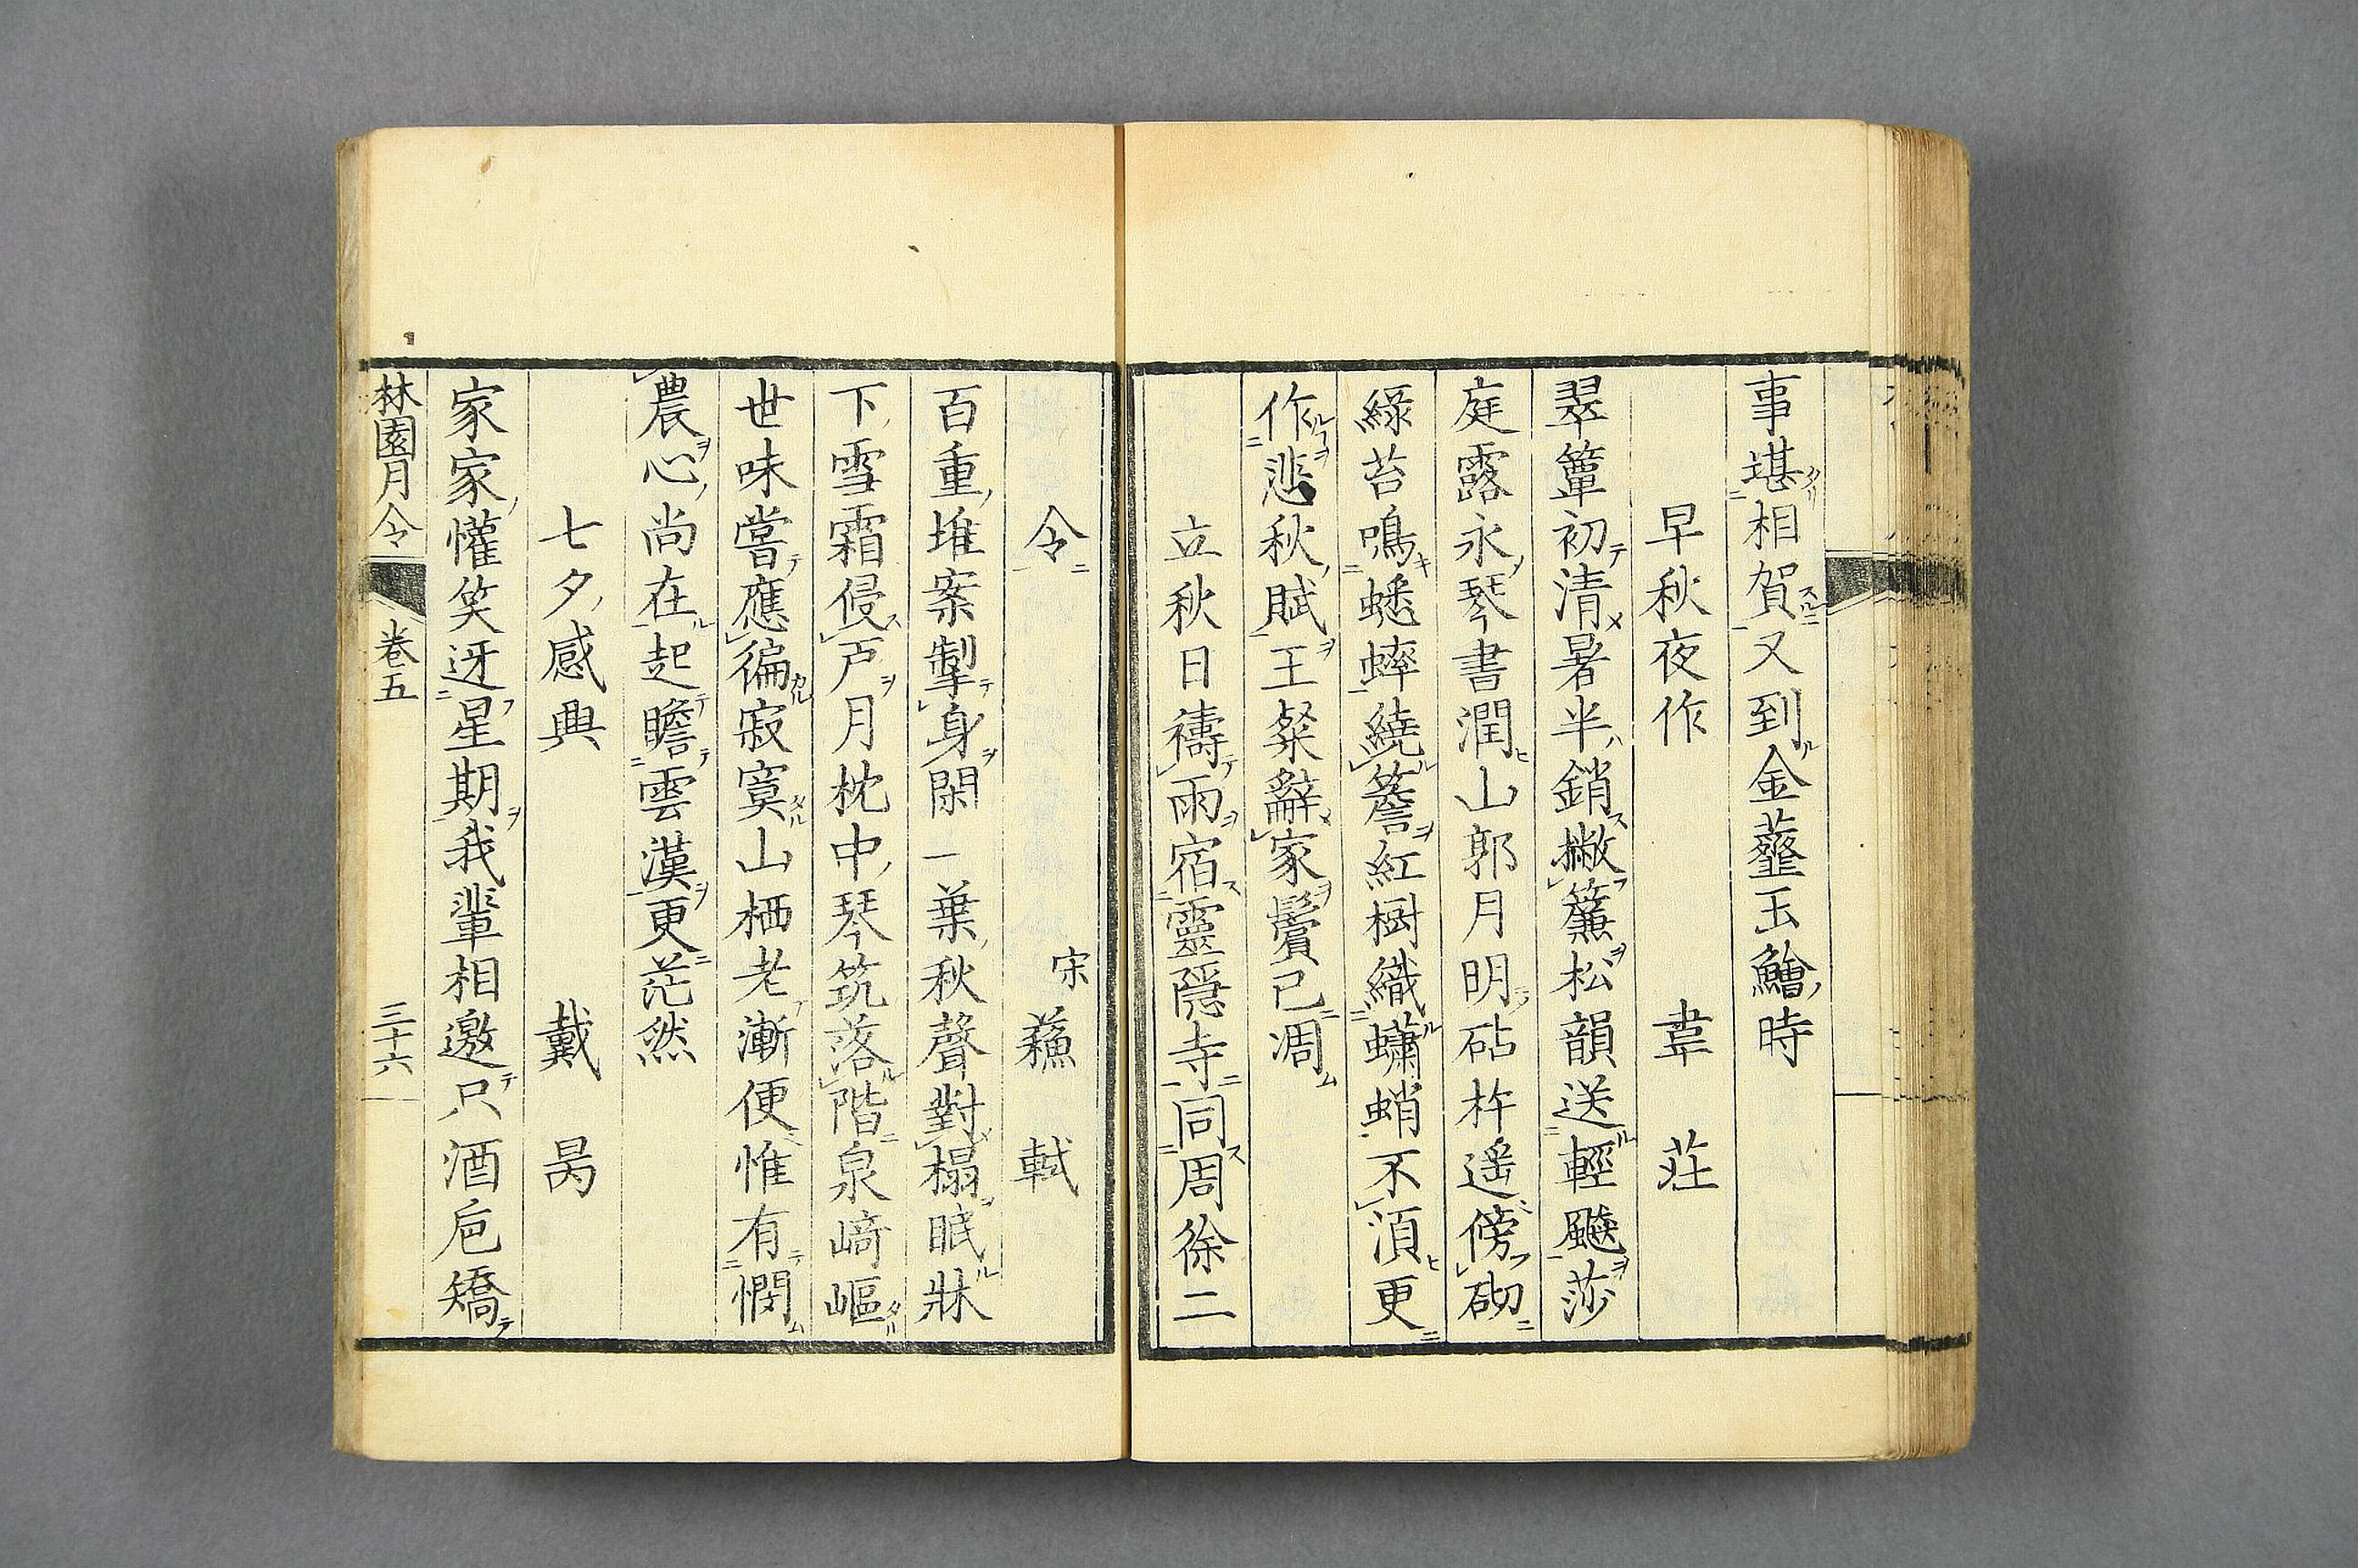 事堪相賀又到金虀玉鱠時
早秋夜作　韋莊
翠簟初清暑半銷撇簾松韻送輕飈莎
庭露永琴書潤山郭月明砧杵遙傍砌
綠苔鳴蟋蟀繞簷紅樹織蠨蛸不須更
作悲秋賦王粲辭家鬢已凋
立秋日禱雨宿靈隱寺同周徐二
令　宋蘓軾
百重堆案掣身閑一葉秋聲對榻眠牀
下雪霜侵戶月枕中琴筑落階泉崎嶇
世味嘗應徧寂寞山栖老漸便惟有憫
農心尚在起瞻雲漢更茫然
七夕感興　戴昺
家家懽笑迓星期我輩相邀只酒巵矯
林園月令　卷五　三十六